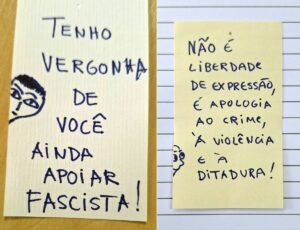 TENHO
VERGONHA
DE
VOCÊ
AINDA
APOIAR
FASCISTA!
NÃO É
LIBERDADE
DE EXPRESSÃO,
É APOLOGIA
AO CRIME,
À VIOLÊNCIA
E À
DITADURA!